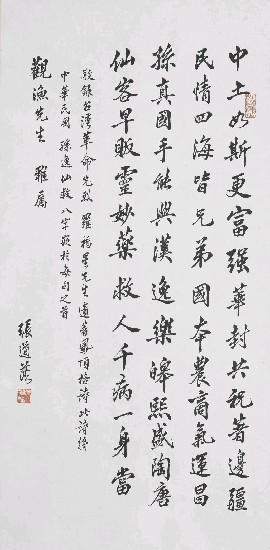 中土如斯更富强華封共祝著邊疆
民情四海皆兄弟國本農商氣運昌
孫真國手能興漢逸樂皞熙盛陶唐
仙客早販靈妙藥救人千病一身當
敬錄台灣革命先烈羅福星先生遺著鳳頂格詩此詩將
中華民國孫逸仙救八字嵌於每句之首
觀漁先生雅屬
張道藩